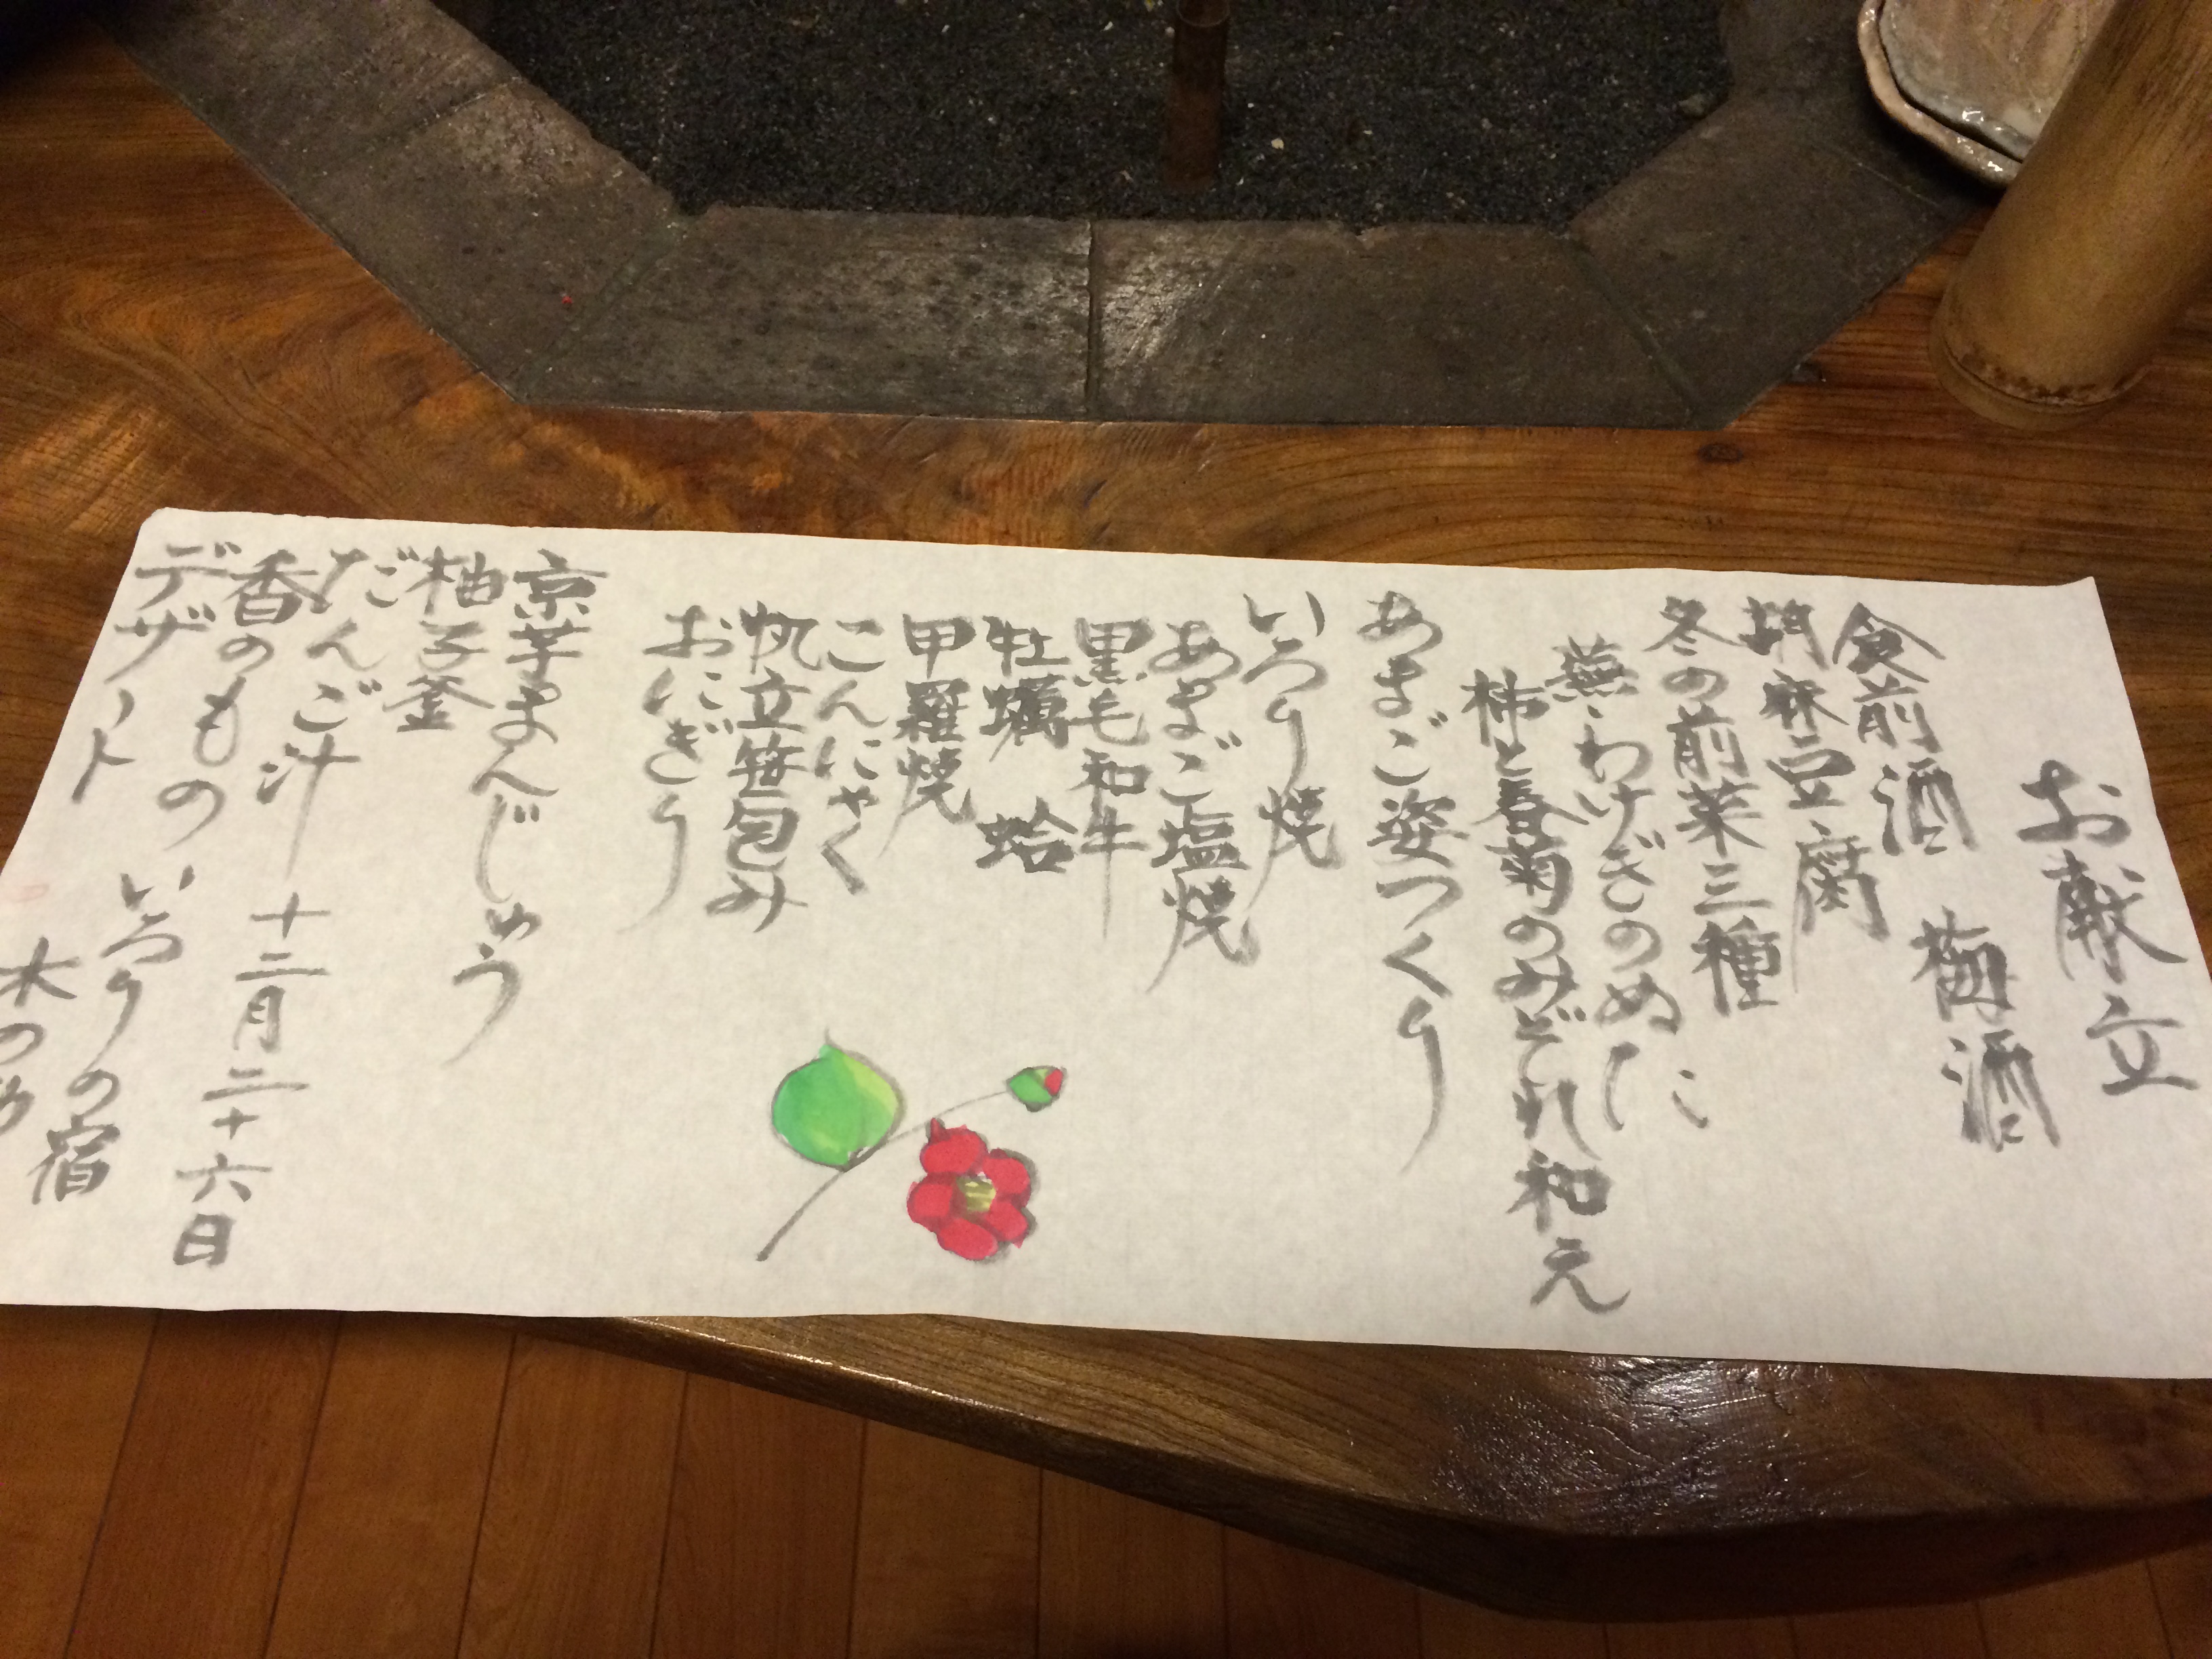 お献立
食前酒 梅酒
胡麻豆腐
冬の前菜三種
蕪・わけぎのぬた
柿と春菊のみぞれ和え
あまご姿つくり
いろり焼
あまご塩焼
黒毛和牛
牡蠣 蛤
甲羅焼
こんにゃく
帆立笹包み
おにぎり
京芋まんじゅう
柚子釜
だご
だんご汁
香のもの
デザート
十二月二十六日
いろりの宿
木の